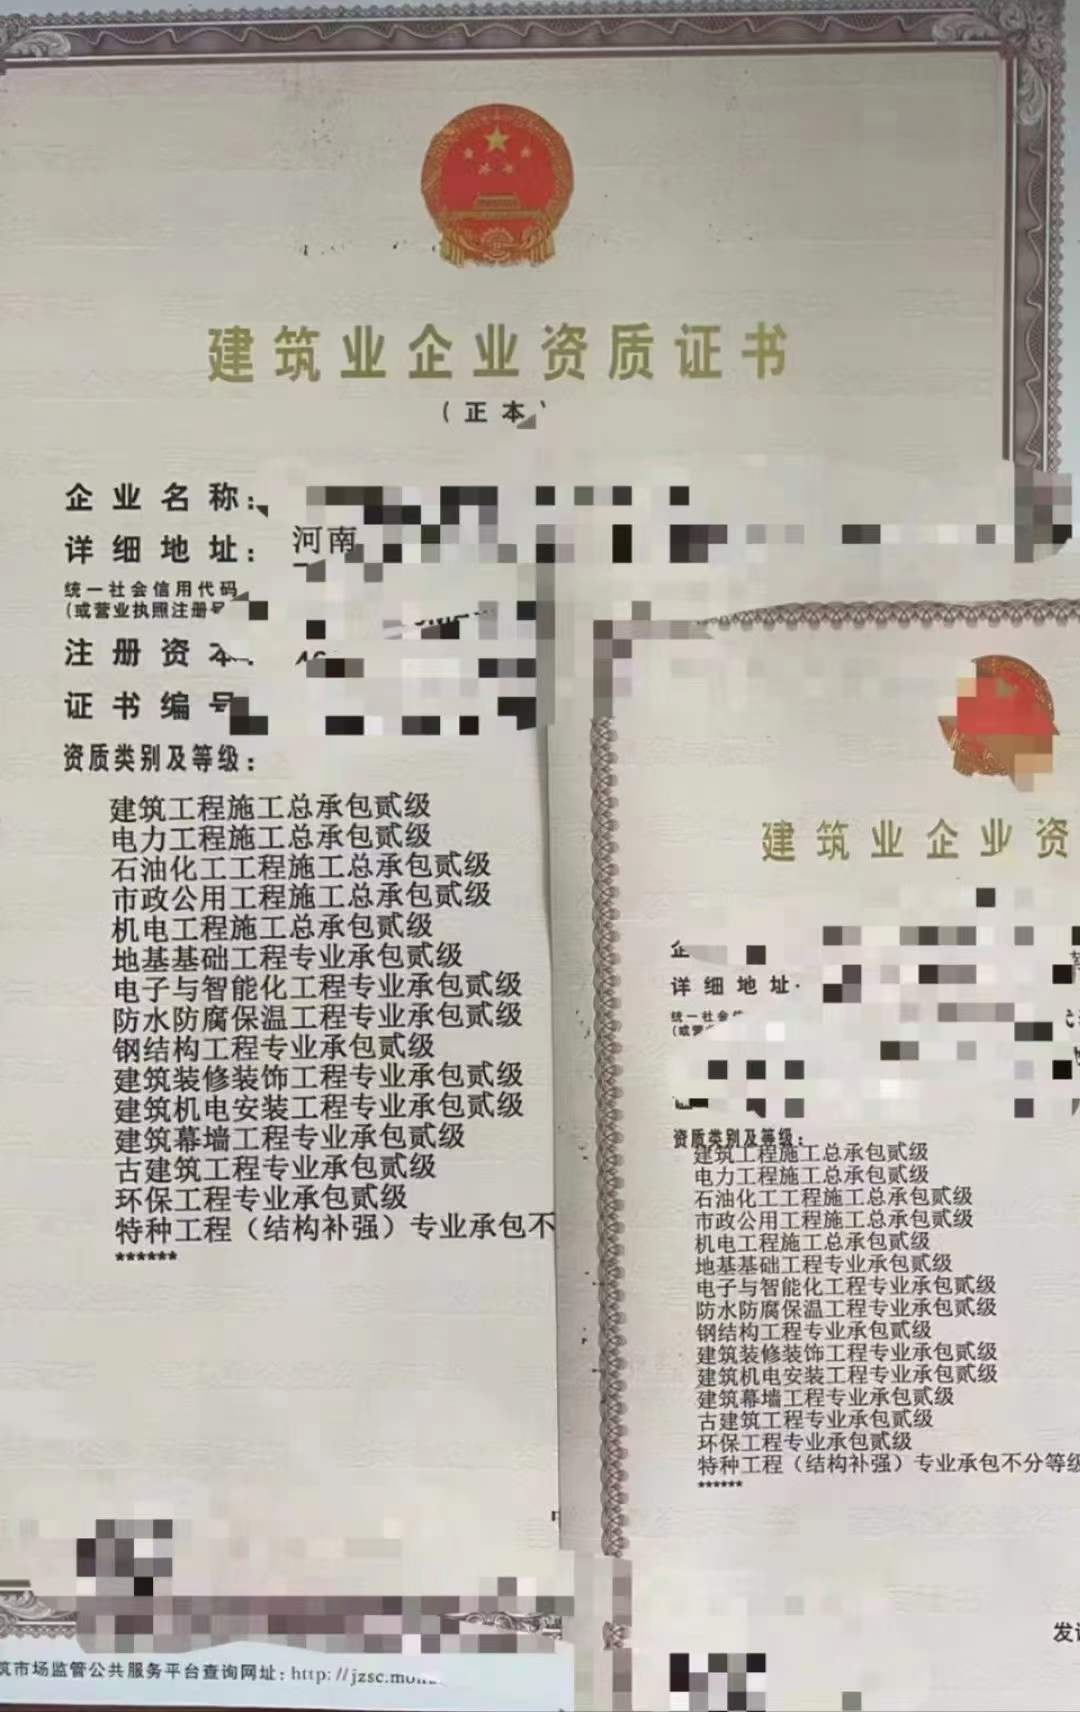 建筑业企业资质证书
(正本
企业名称：
详细地址： 河南
统一社会信用代码
(或营业执照注册号
注册资本：
证书编号
资质类别及等级：
建筑工程施工总承包贰级
电力工程施工总承包贰级
石油化工工程施工总承包贰级
市政公用工程施工总承包贰级
机电工程施工总承包贰级
地基基础工程专业承包贰级
电子与智能化工程专业承包贰级
防水防腐保温工程专业承包贰级
钢结构工程专业承包贰级
建筑装修装饰工程专业承包贰级
建筑机电安装工程专业承包贰级
建筑幕墙工程专业承包贰级
古建筑工程专业承包贰级
环保工程专业承包贰级
特种工程（结构补强）专业承包不
******
筑市场监管公共服务平台查询网址：http://jzsc.moh
建筑业企业资
企
详细地址
统一社会信
(或营
资质类别及等级：
建筑工程施工总承包贰级
电力工程施工总承包贰级
石油化工工程施工总承包贰级
市政公用工程施工总承包贰级
机电工程施工总承包贰级
地基基础工程专业承包贰级
电子与智能化工程专业承包贰级
防水防腐保温工程专业承包贰级
钢结构工程专业承包贰级
建筑装修装饰工程专业承包贰级
建筑机电安装工程专业承包贰级
建筑幕墙工程专业承包贰级
古建筑工程专业承包贰级
环保工程专业承包贰级
特种工程（结构补强）专业承包不分等级
******
发证